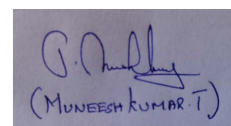 (MUNEESH KUMAR. T)